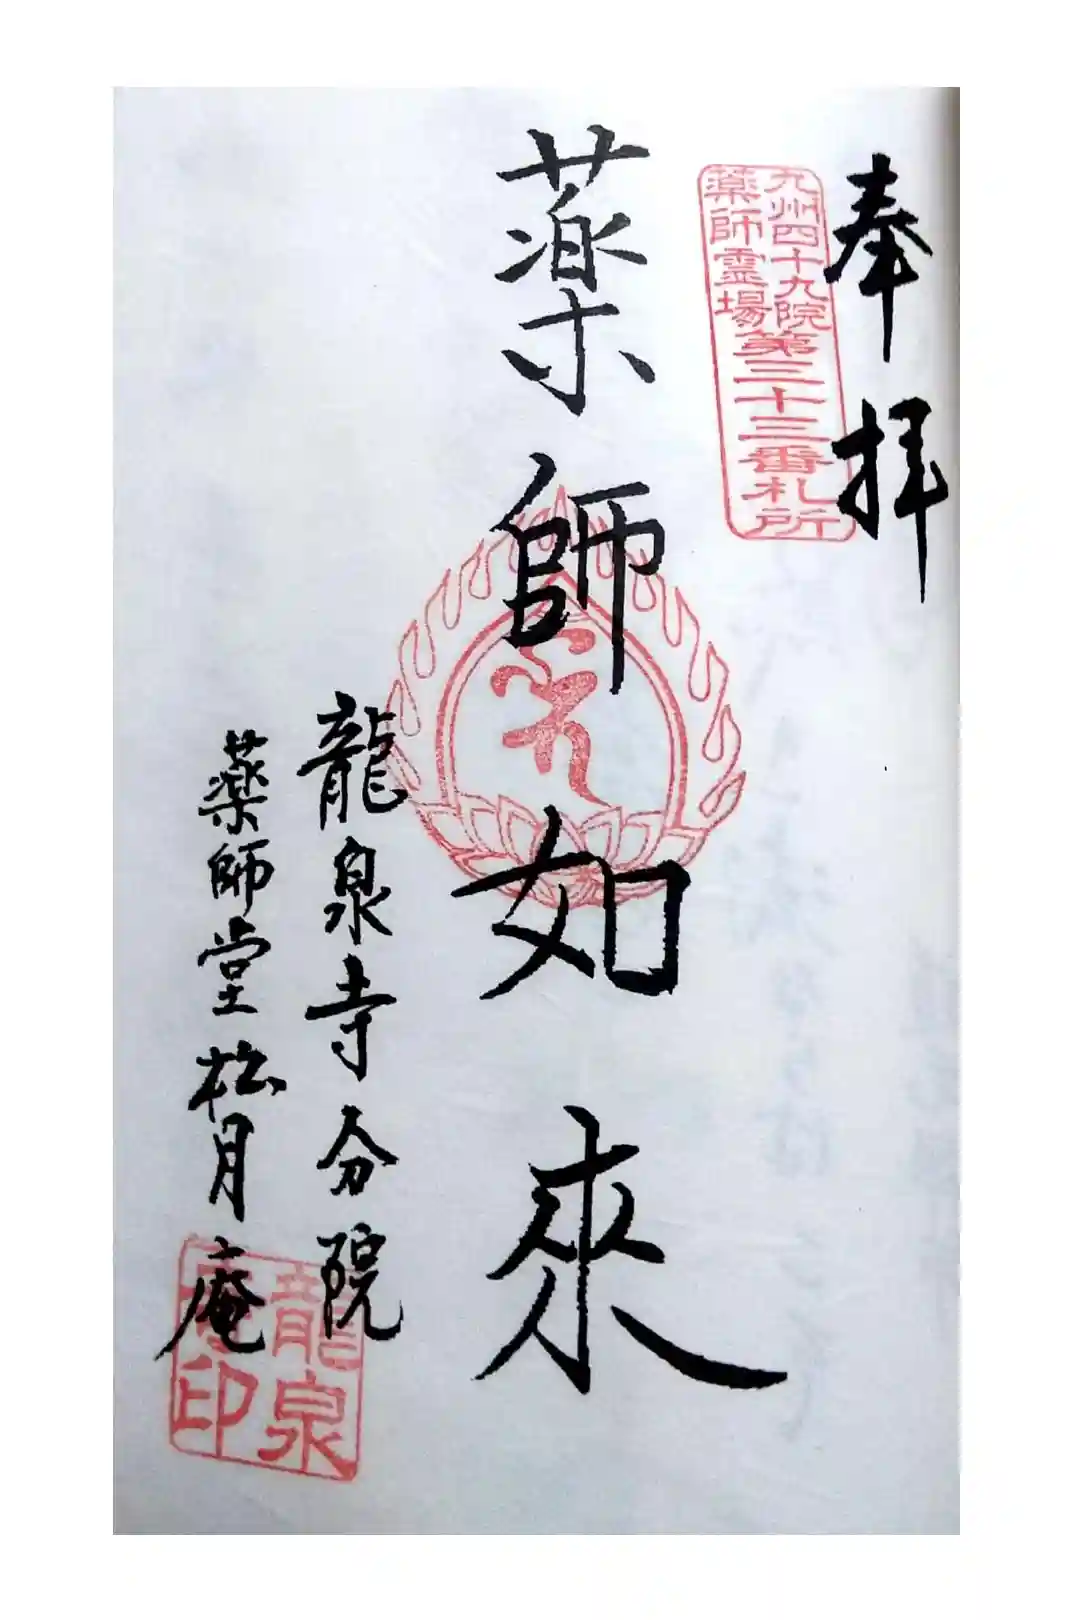 奉拝
九州四十九院
薬師霊場
第三十三番札所
薬師如來
龍泉寺分院
薬師堂松月庵
龍泉
印